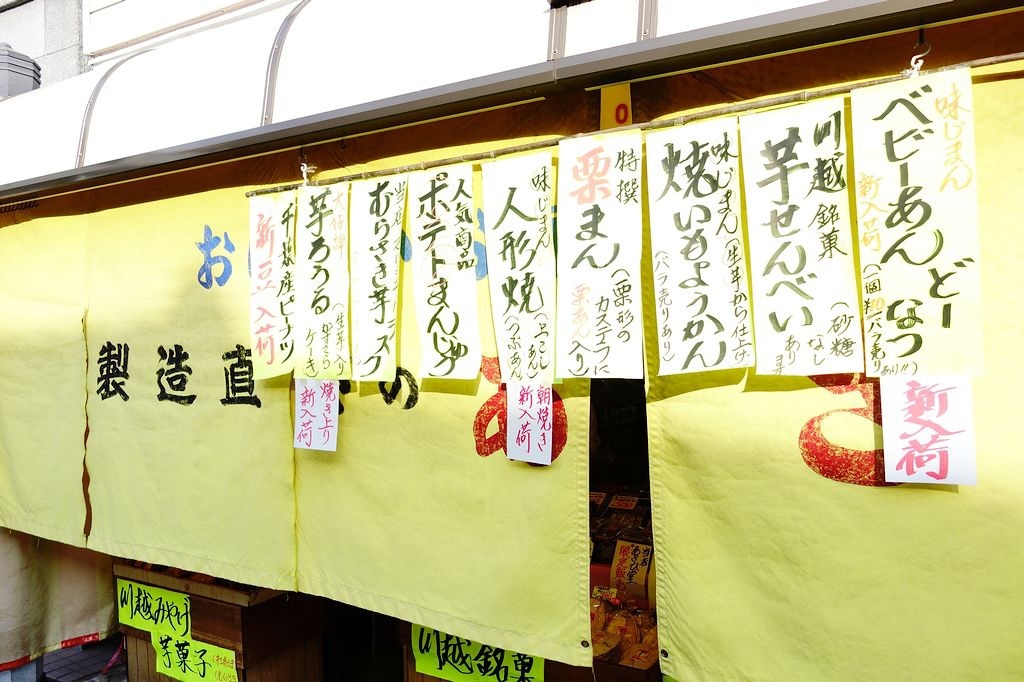 味じまん
ベビーあんどーなつ
新入荷
新入荷
川越銘菓
芋せんべい
(砂糖なし
あり
味じまん
焼いもようかん
(生芋から仕上げ
(バラ売りあり)
特撰
栗まん
(栗形の
カステラに
栗あん入り)
味じまん
人形焼
(つぶあん
朝焼き
新入荷
人気商品
ポテトまんじゅ
むらさき芋
芋ろうる
(生芋入り
ケーキ)
焼き上り
新入荷
千葉産ピーナツ
新豆入荷
お
製造直
の
川越みやげ
芋菓子
川越銘菓
当店
あさひ堂
限定販売
0